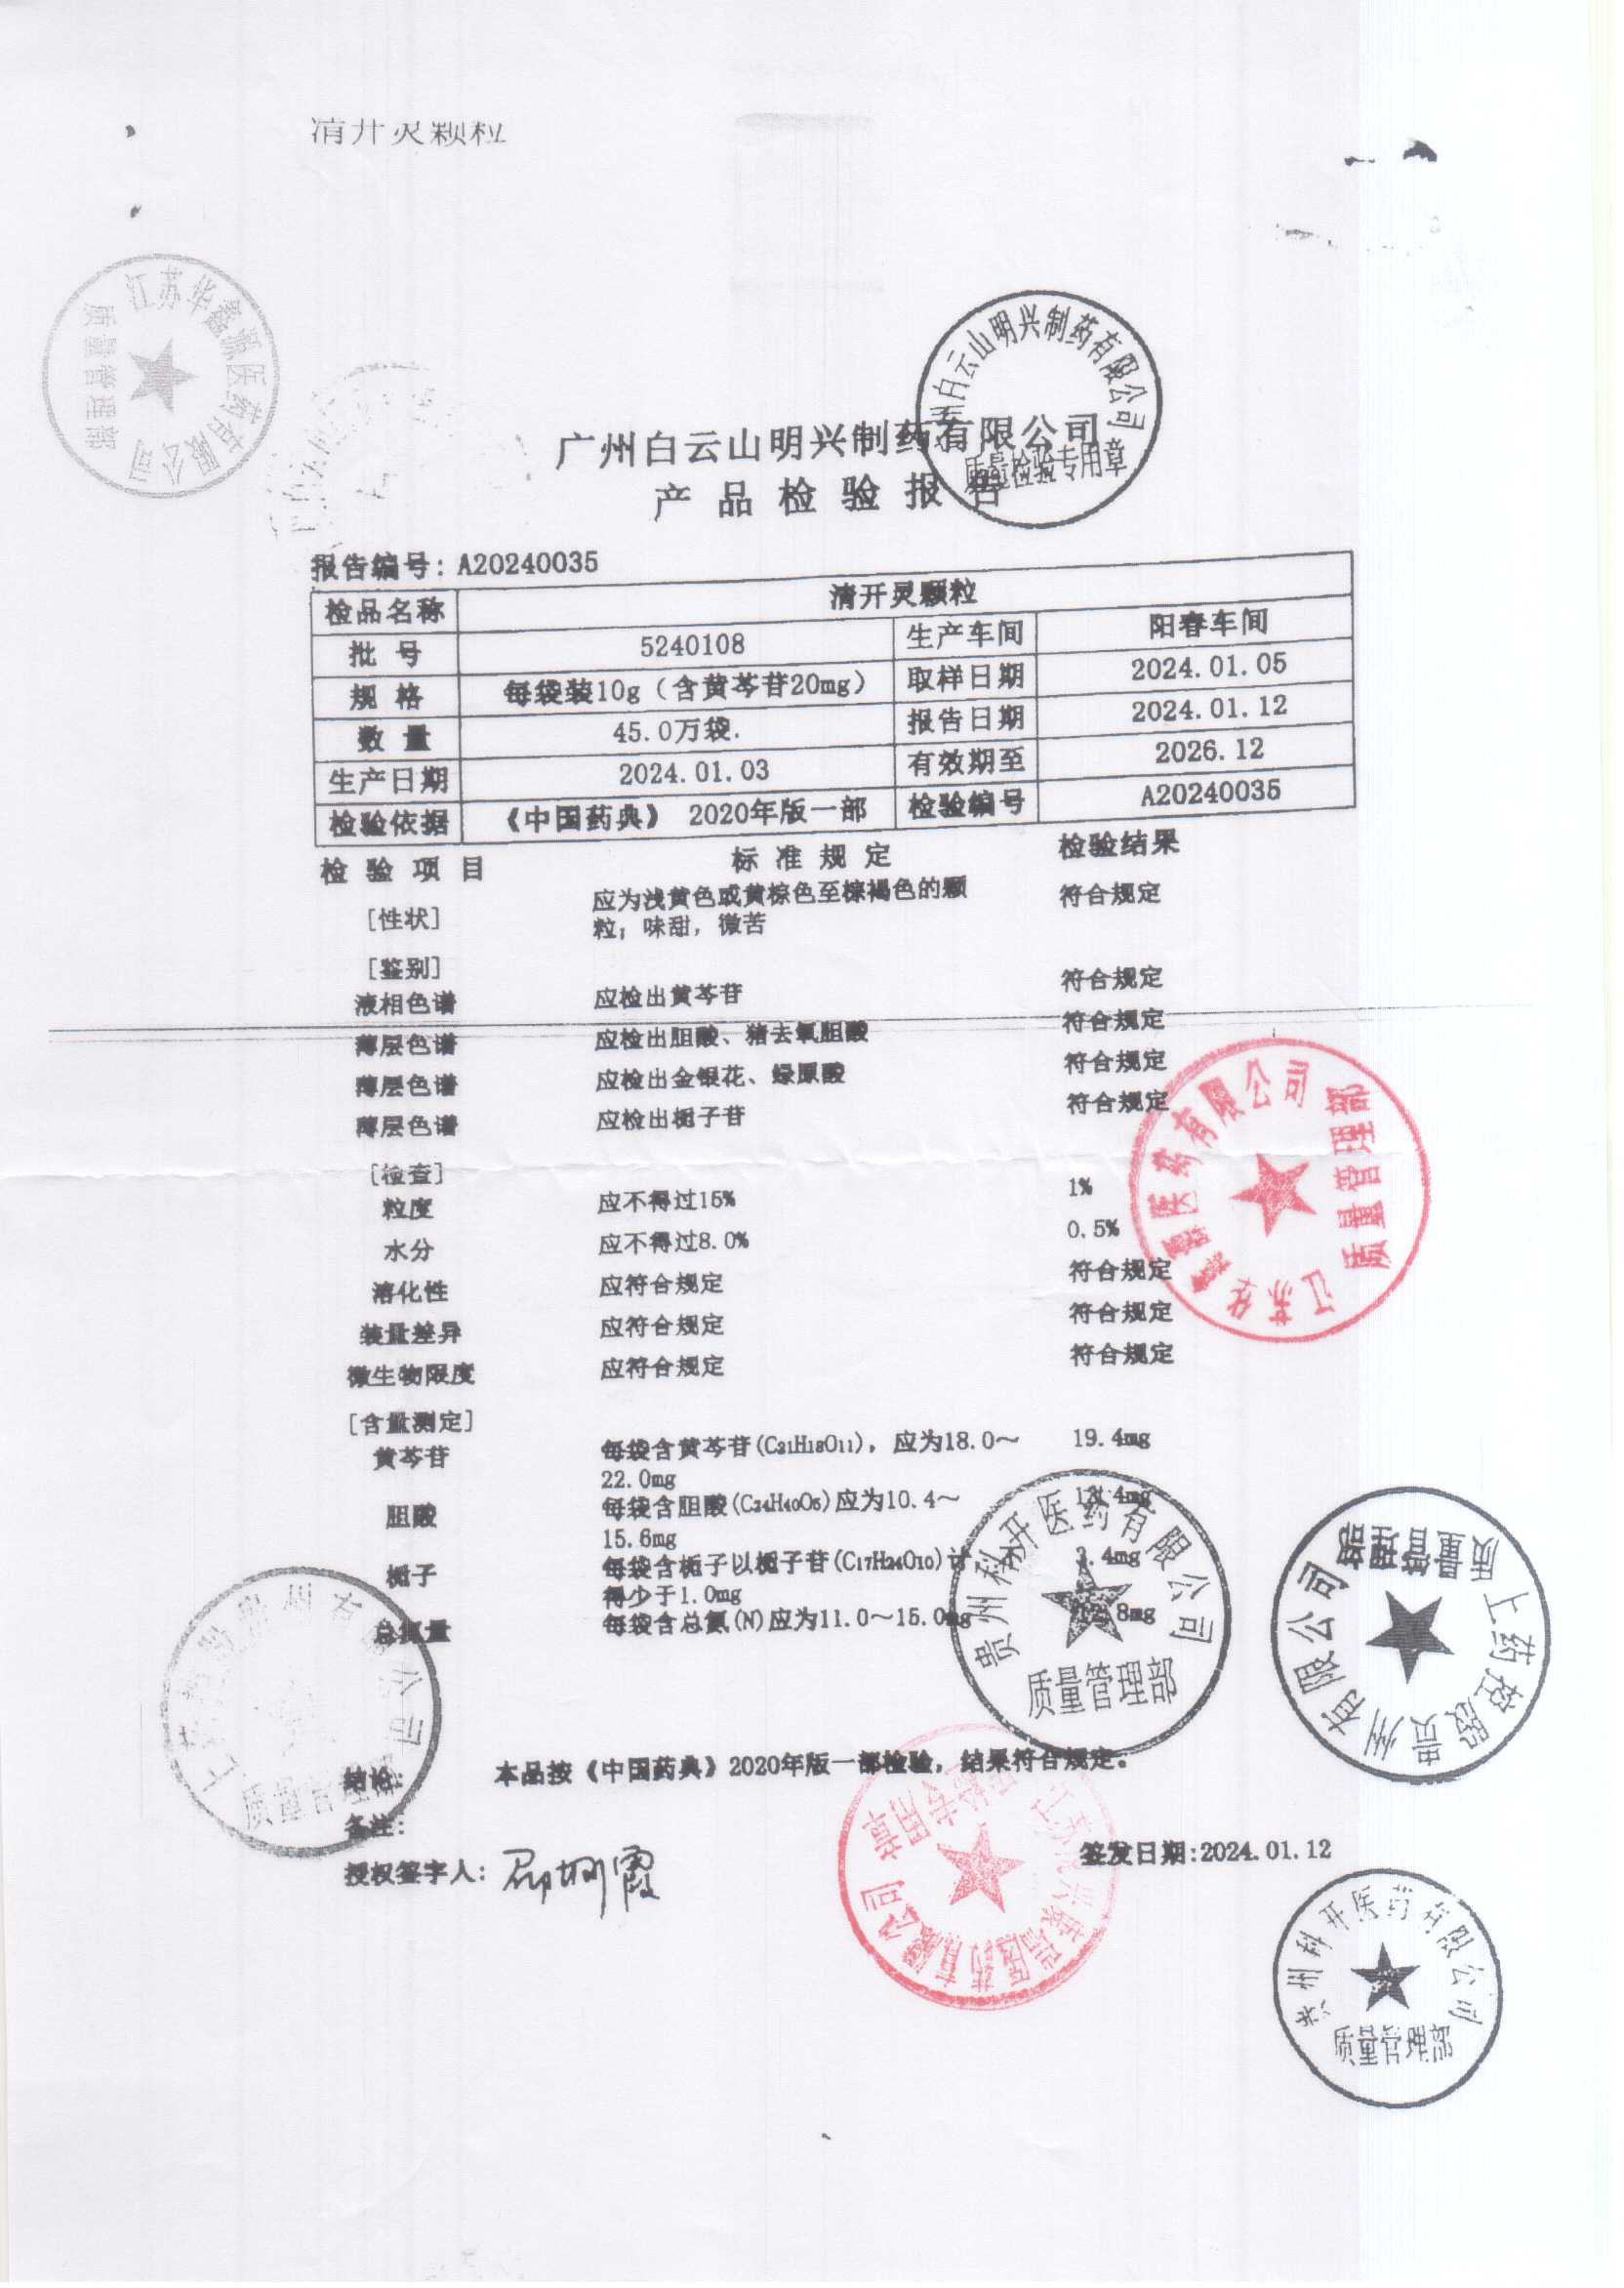 清开灵颗粒
江苏华鑫源医药有限公司
质量管理部
广州白云山明兴制药有限公司
质量检验专用章
广州白云山明兴制药有限公司
产品检验报告
报告编号：A20240035
检品名称 清开灵颗粒
批号 5240108 生产车间 阳春车间
规格 每袋装10g（含黄芩苷20mg） 取样日期 2024.01.05
数量 45.0万袋. 报告日期 2024.01.12
生产日期 2024.01.03 有效期至 2026.12
检验依据 《中国药典》 2020年版一部 检验编号 A20240035
检验项目 标准规定 检验结果
[性状] 应为浅黄色或黄棕色至棕褐色的颗 符合规定
粒；味甜，微苦
[鉴别]
液相色谱 应检出黄芩苷 符合规定
薄层色谱 应检出胆酸、猪去氧胆酸 符合规定
薄层色谱 应检出金银花、绿原酸 符合规定
薄层色谱 应检出栀子苷 符合规定
[检查]
粒度 应不得过15% 1%
水分 应不得过8.0% 0.5%
溶化性 应符合规定 符合规定
装量差异 应符合规定 符合规定
微生物限度 应符合规定 符合规定
医药有限公司
质量管理部
[含量测定]
黄芩苷 每袋含黄芩苷(C₂₁H₁₈O₁₁)，应为18.0～ 19.4mg
22.0mg
胆酸 每袋含胆酸(C₂₄H₄₀O₅)应为10.4～
15.6mg
栀子 每袋含栀子以栀子苷(C₁₇H₂₄O₁₀)计，
得少于1.0mg
总氮量 每袋含总氮(N)应为11.0～15.0mg
贵州科开医药有限公司
质量管理部
上药控股贵州有限公司
质量管理部
结论： 本品按《中国药典》2020年版一部检验，结果符合规定。
备注：
授权签字人：
签发日期：2024.01.12
医药有限公司
贵州科开医药有限公司
质量管理部